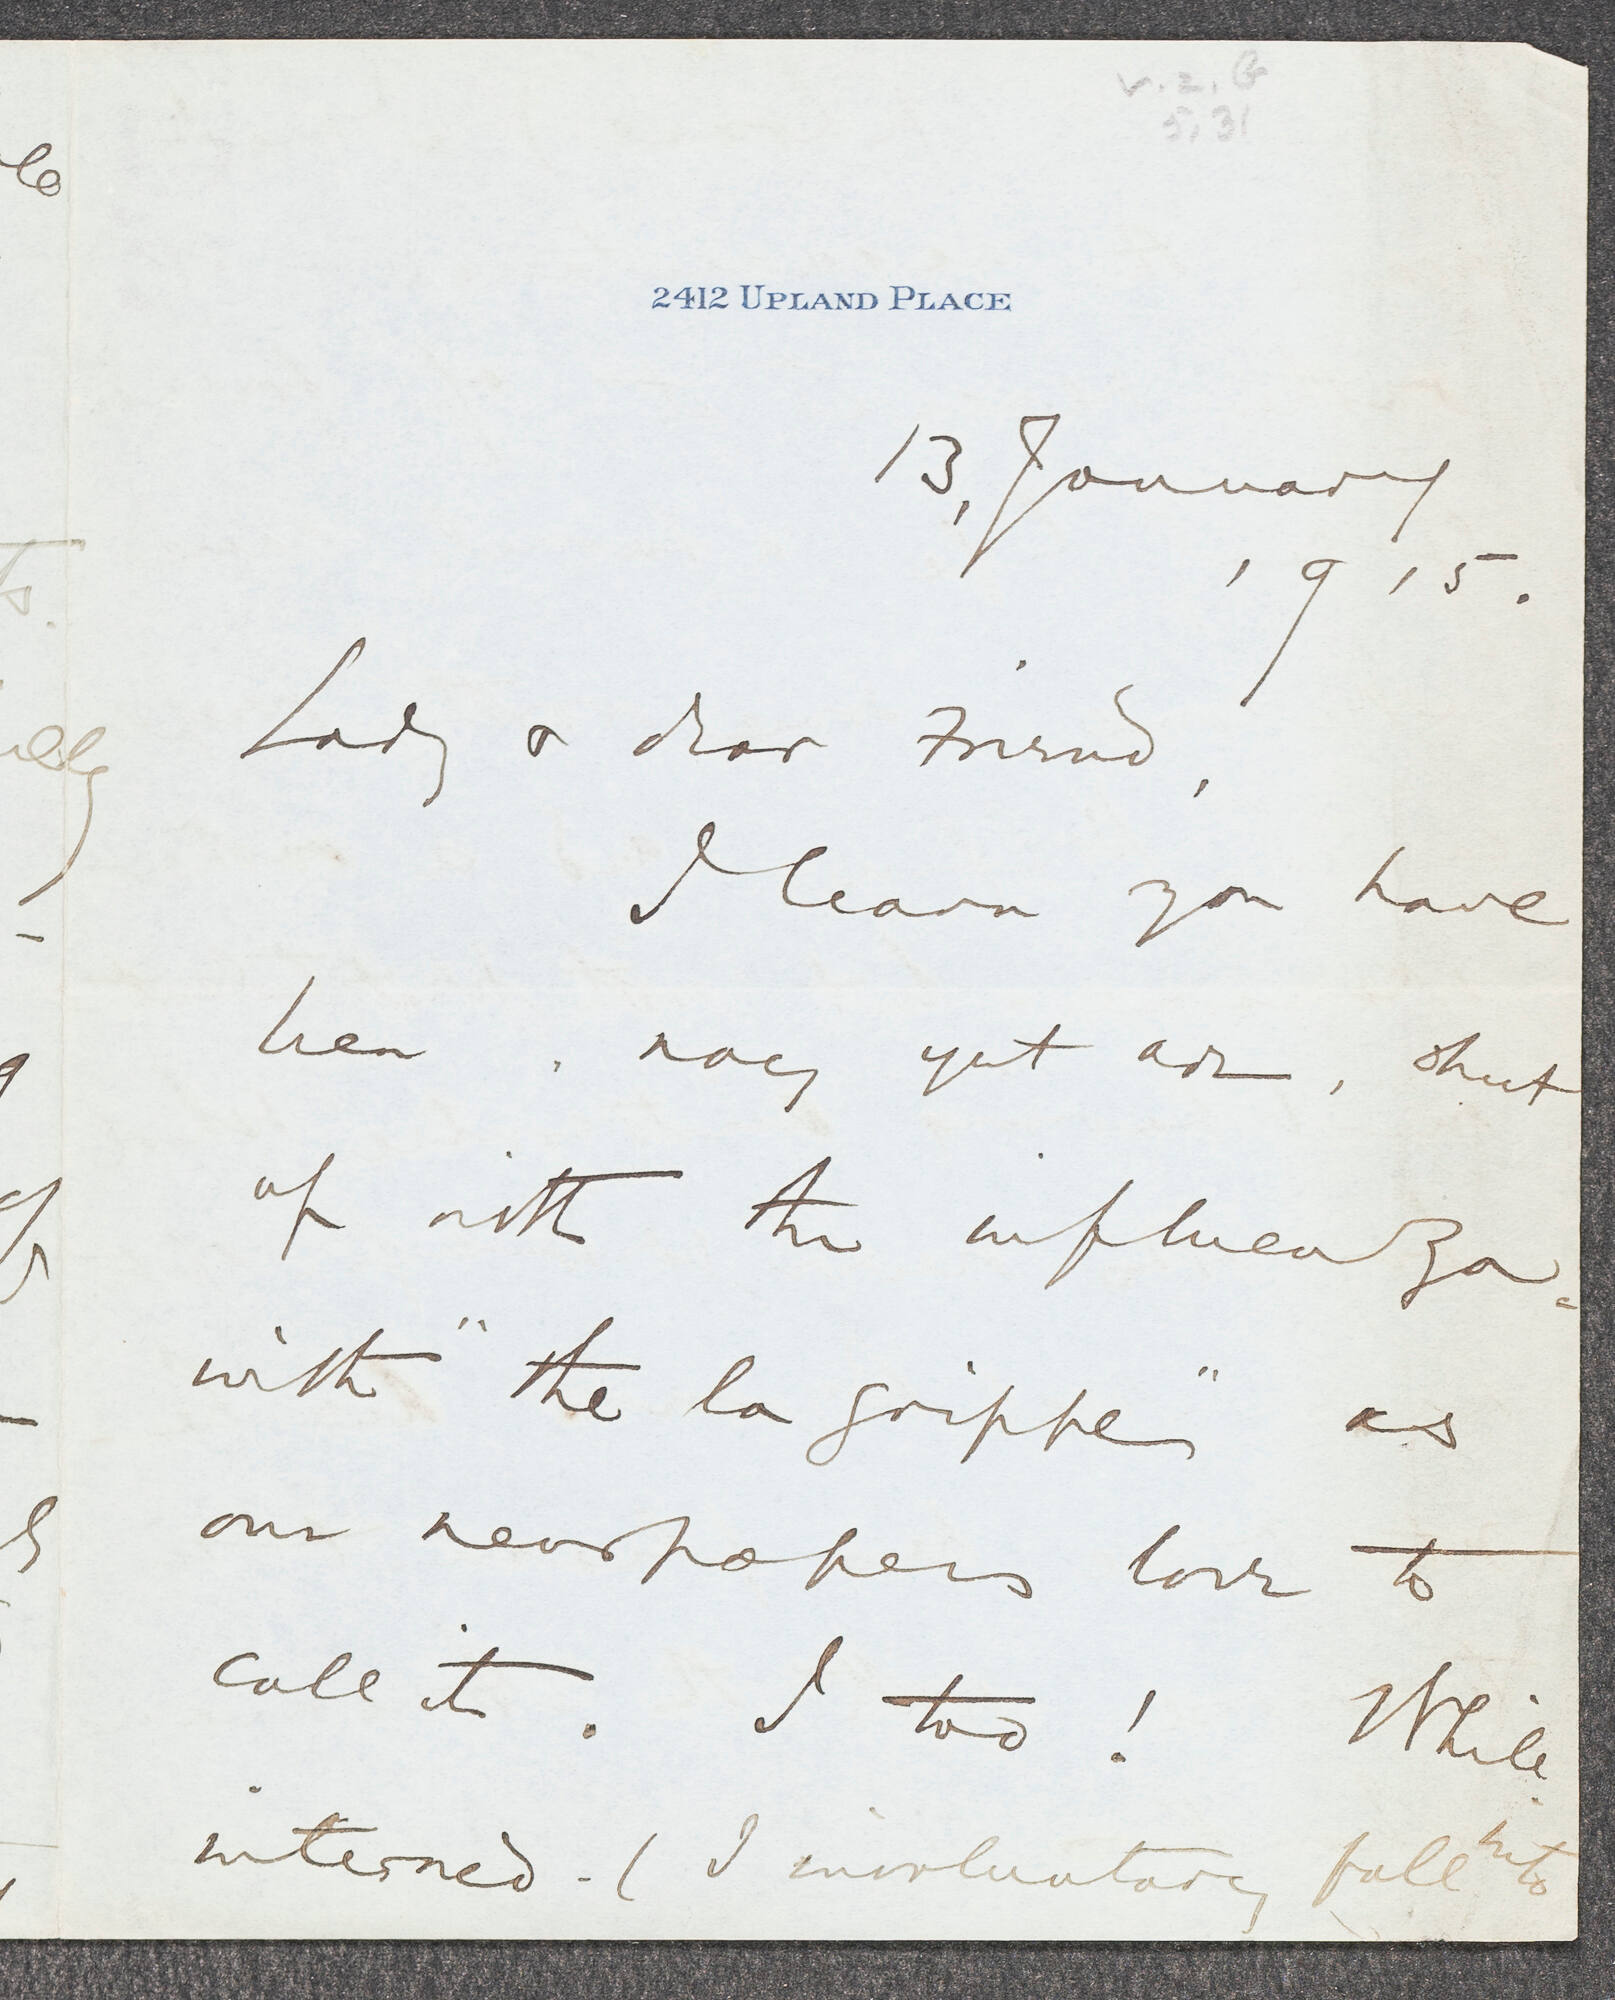 v. 2. G
5, 31
2412 UPLAND PLACE
13, January
1915.
Lady & dear Friend,
I learn you have
been, nay yet are, shut
up with the influenza -
with "the la grippe" as
our newspapers love to
call it. I too! While
interned - ( I involuntary fall into